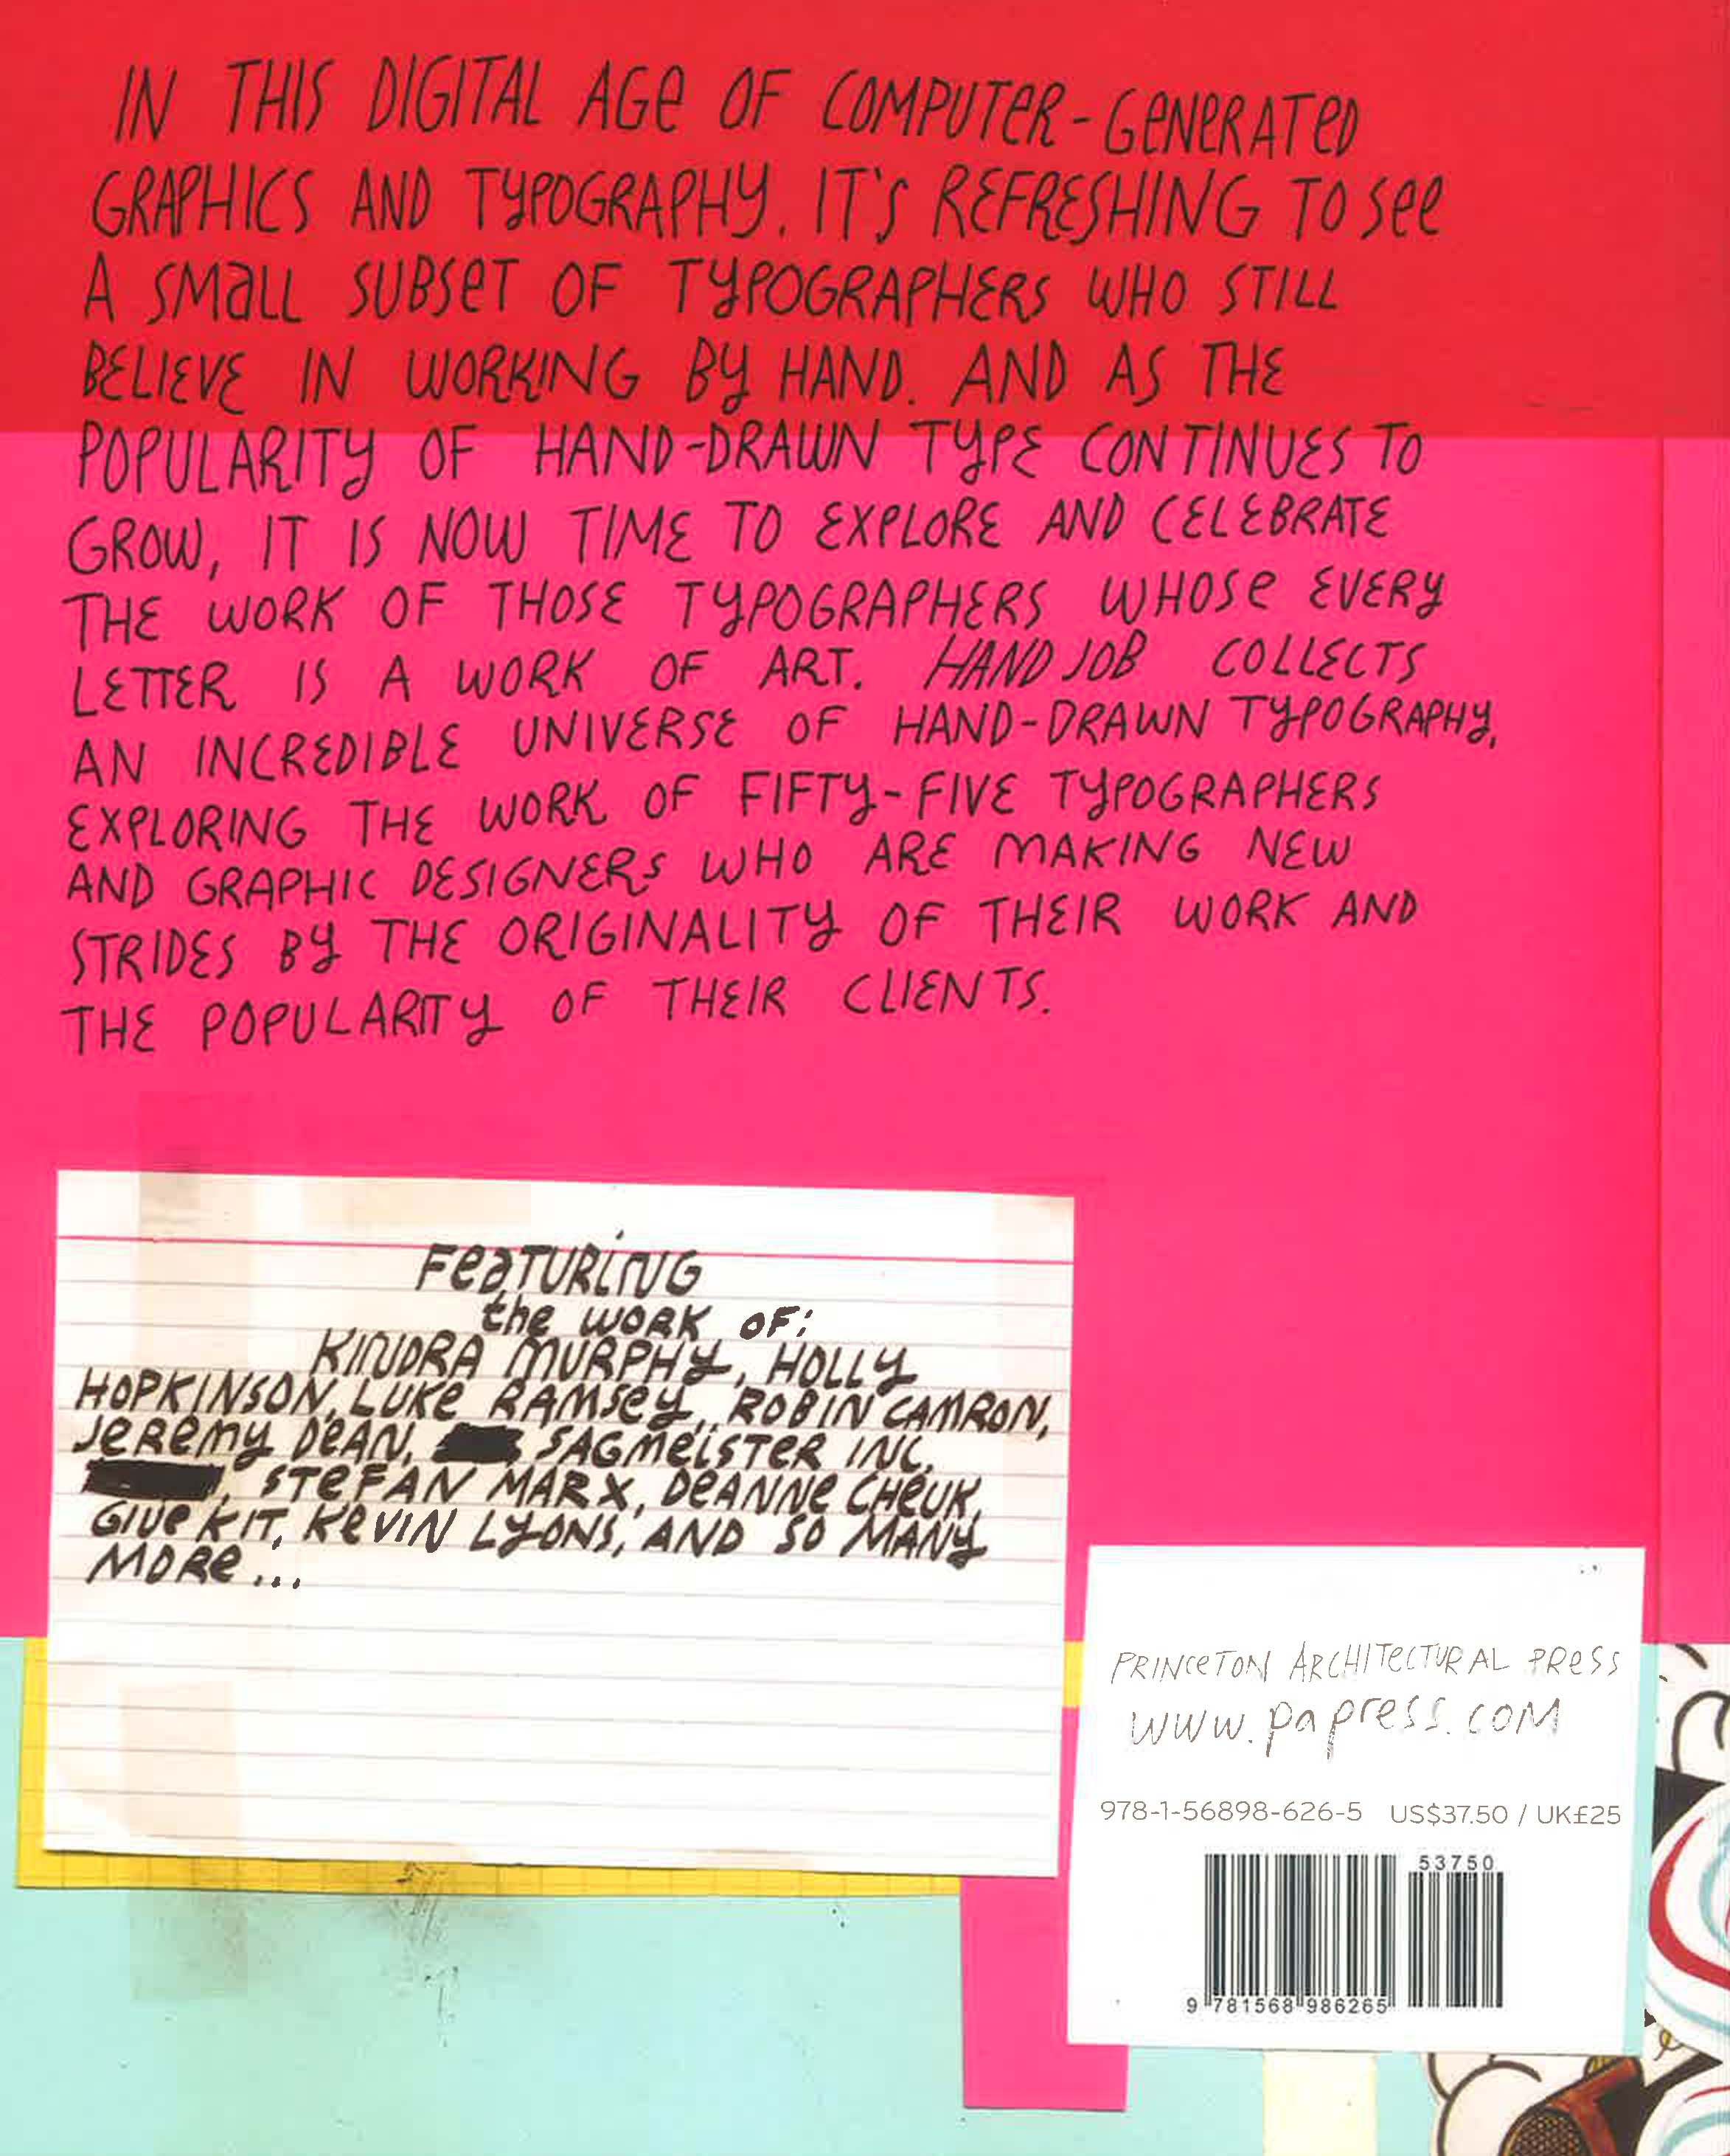 IN THIS DIGITAL AGE OF COMPUTER-GENERATED
GRAPHICS AND TYPOGRAPHY, IT'S REFRESHING TO SEE
A SMALL SUBSET OF TYPOGRAPHERS WHO STILL
BELIEVE IN WORKING BY HAND. AND AS THE
POPULARITY OF HAND-DRAWN TYPE CONTINUES TO
GROW, IT IS NOW TIME TO EXPLORE AND CELEBRATE
THE WORK OF THOSE TYPOGRAPHERS WHOSE EVERY
LETTER IS A WORK OF ART. HAND JOB COLLECTS
AN INCREDIBLE UNIVERSE OF HAND-DRAWN TYPOGRAPHY,
EXPLORING THE WORK OF FIFTY-FIVE TYPOGRAPHERS
AND GRAPHIC DESIGNERS WHO ARE MAKING NEW
STRIDES BY THE ORIGINALITY OF THEIR WORK AND
THE POPULARITY OF THEIR CLIENTS.
FEATURING
the WORK OF:
KINDRA MURPHY, HOLLY
HOPKINSON, LUKE RAMSEY, ROBIN CAMRON,
JEREMY DEAN, SAGMEISTER INC,
, STEFAN MARX, DEANNE CHEUK,
GIVE KIT, KEVIN LYONS, AND SO MANY
MORE...
PRINCETON ARCHITECTURAL PRESS
WWW.papress.COM
978-1-56898-626-5 US$37.50 / UK£25
53750
9 781568 986265